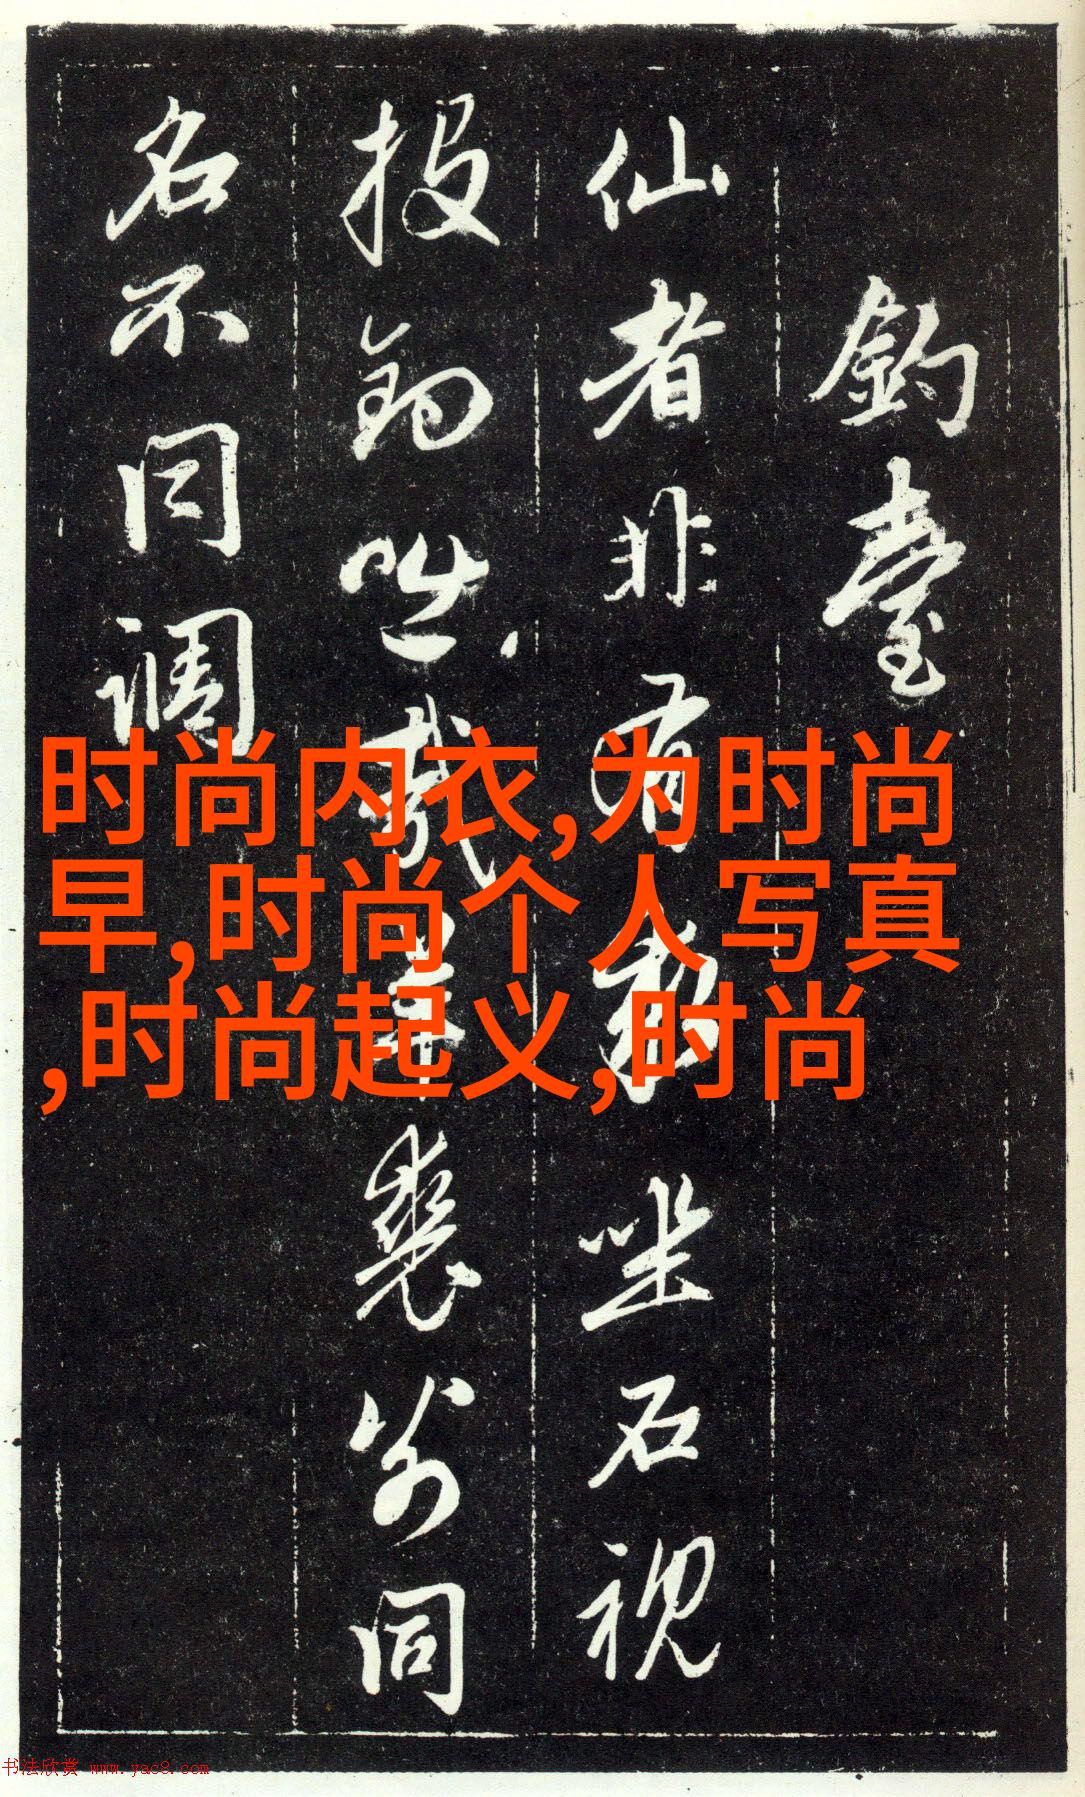 釣臺
仙者非有坐石視
投釣咄哉羊裘翁同
名不同調
时尚内衣,为时尚
早,时尚个人写真
,时尚起义,时尚
书法欣赏 www.yac8.com